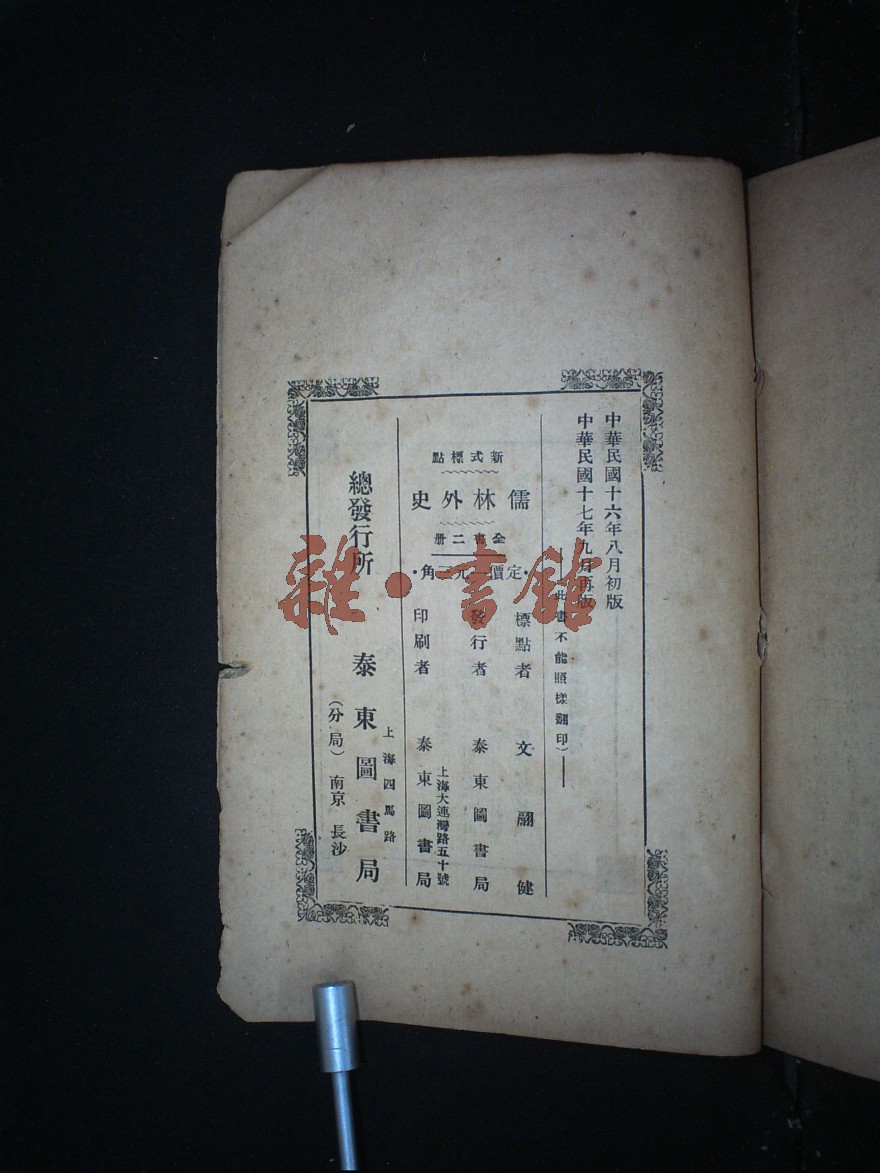 中華民國十六年八月初版
中華民國十七年九月再版
（此書不能照樣翻印）
新式標點
儒林外史
全書二冊
·定價 元三角·
標點者 文 翮 健
發行者 泰東圖書局
上海大連灣路五十號
印刷者 泰東圖書局
上海四馬路
總發行所 泰東圖書局
（分局）南京 長沙
雜·書館